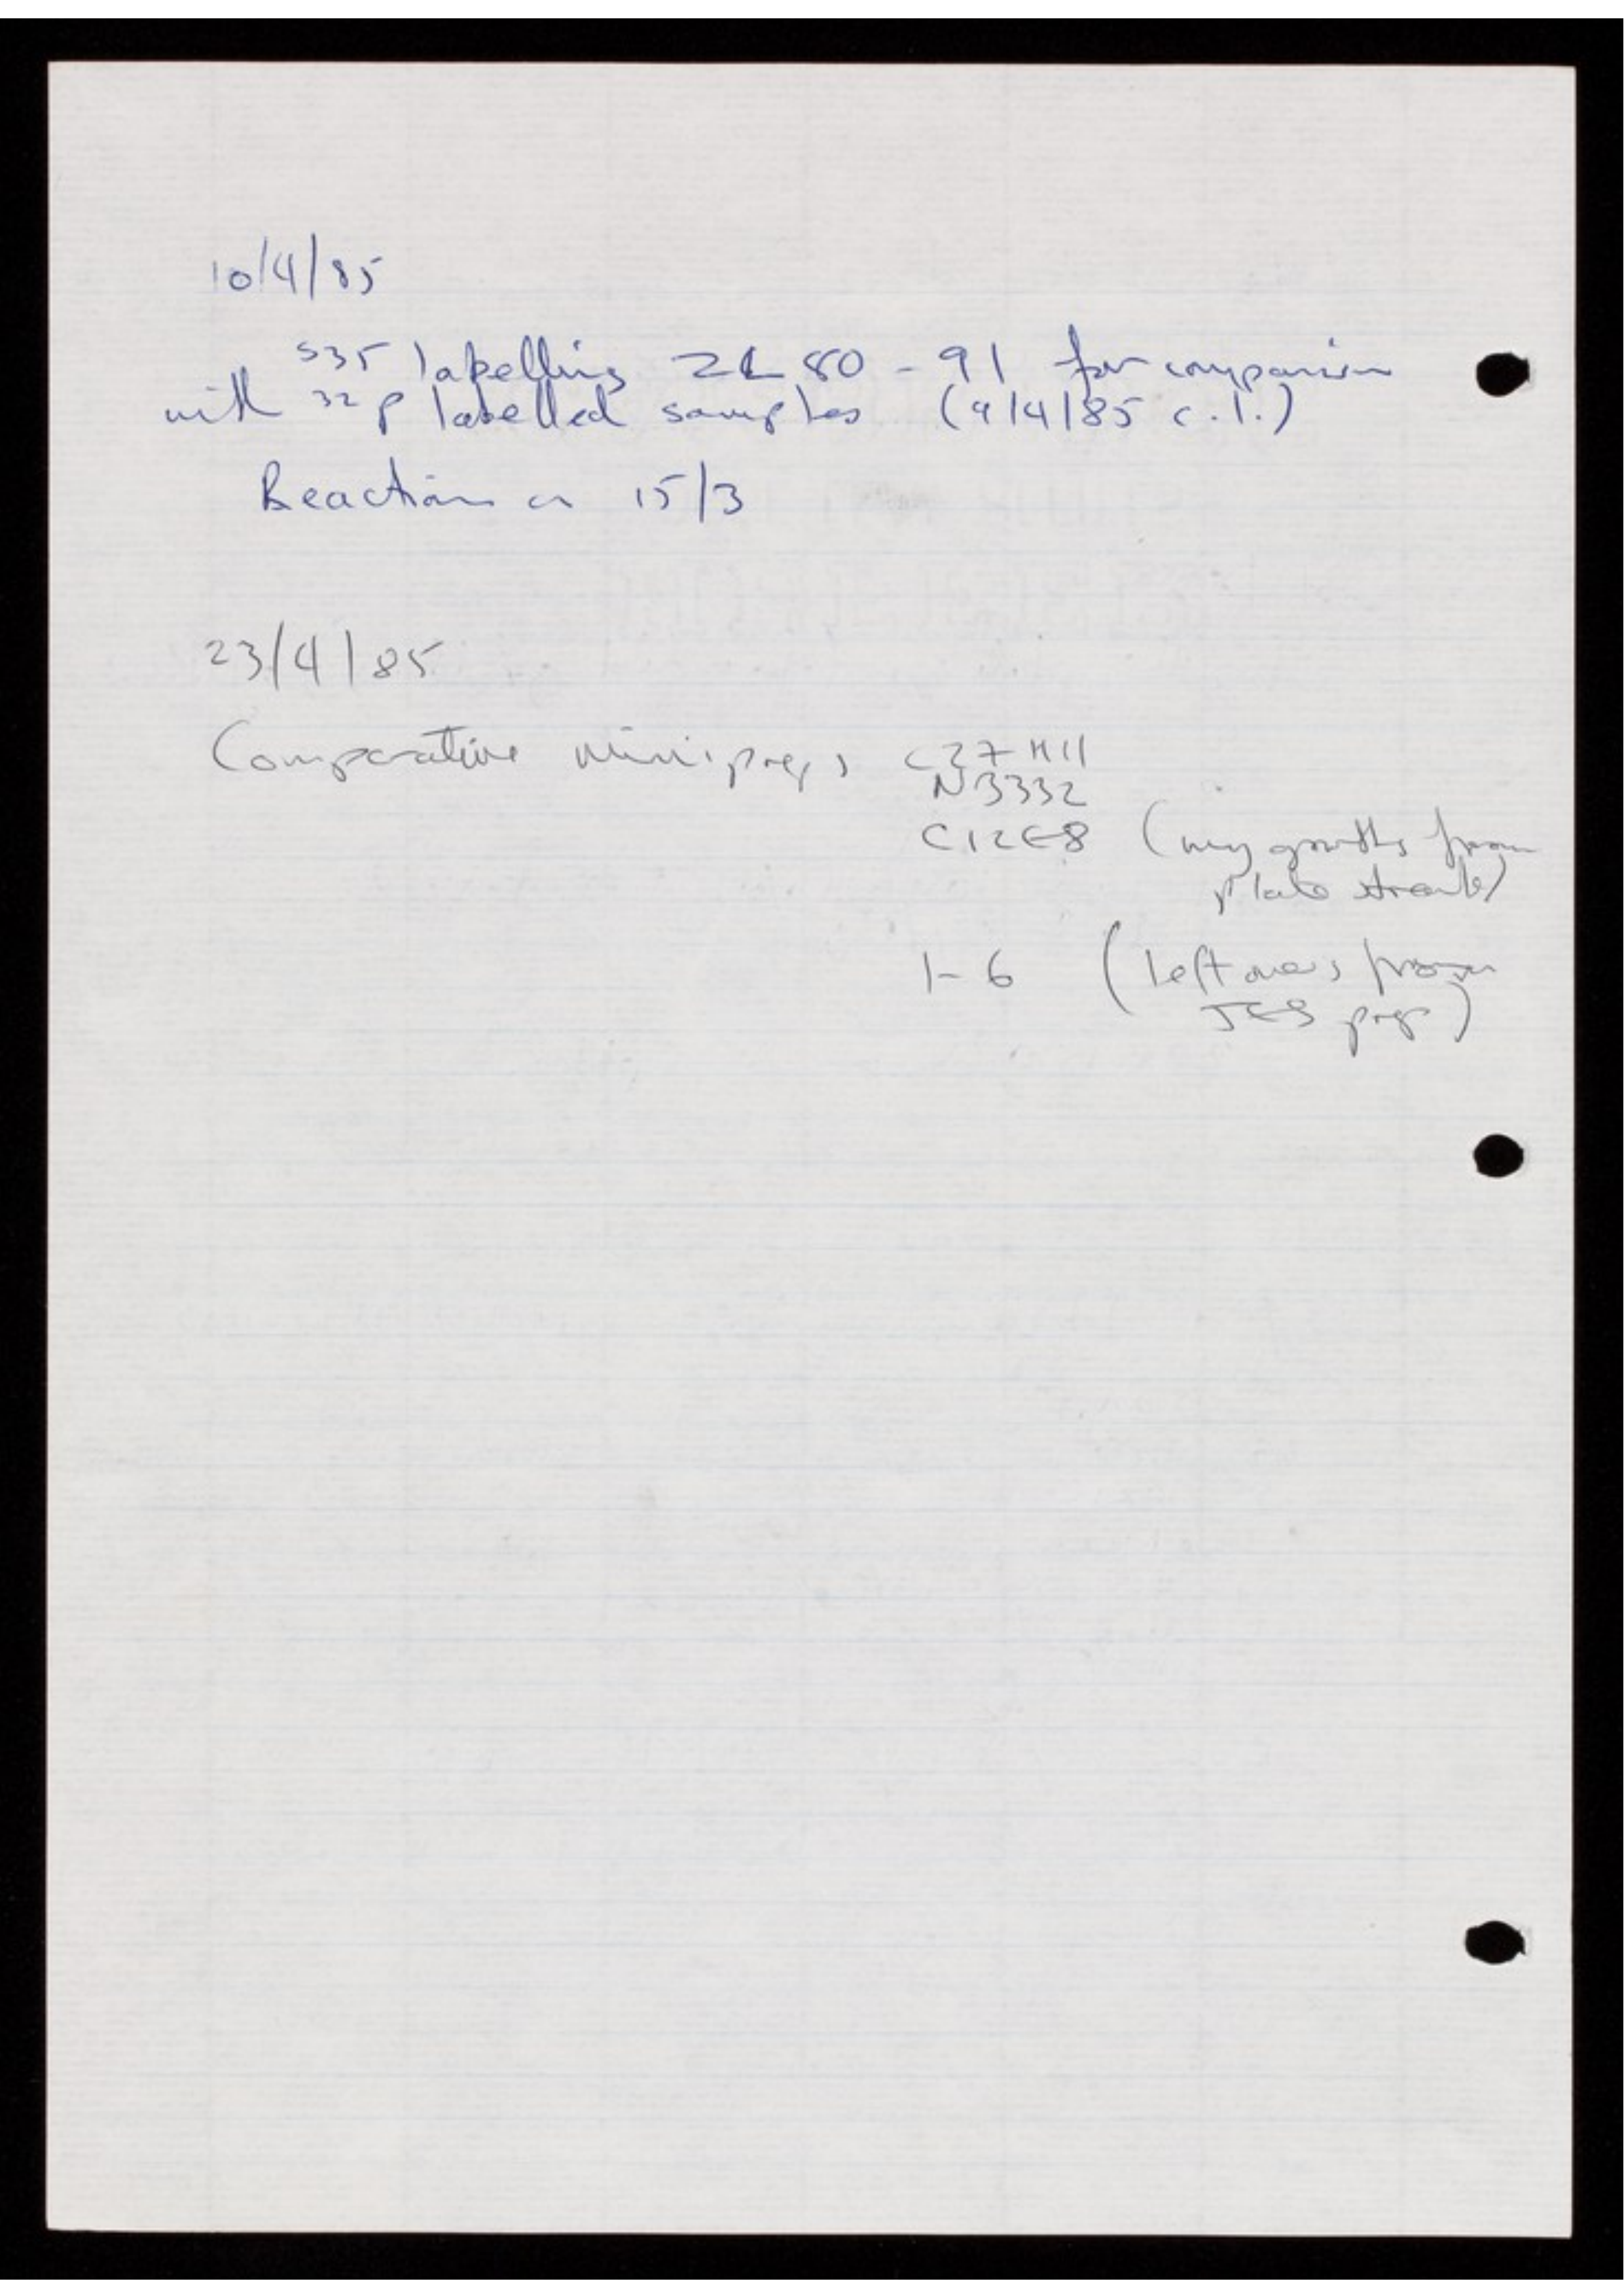 10/4/85
S35 labelling ZL 80 - 91 for comparison
with 32P labelled samples (9/4/85 c.l.)
Reaction on 15/3
23/4/85
Comparative minipreps C27H11
N3332
C12E8 (my growths from
plate streaks)
1-6 (leftovers from
JES prep)